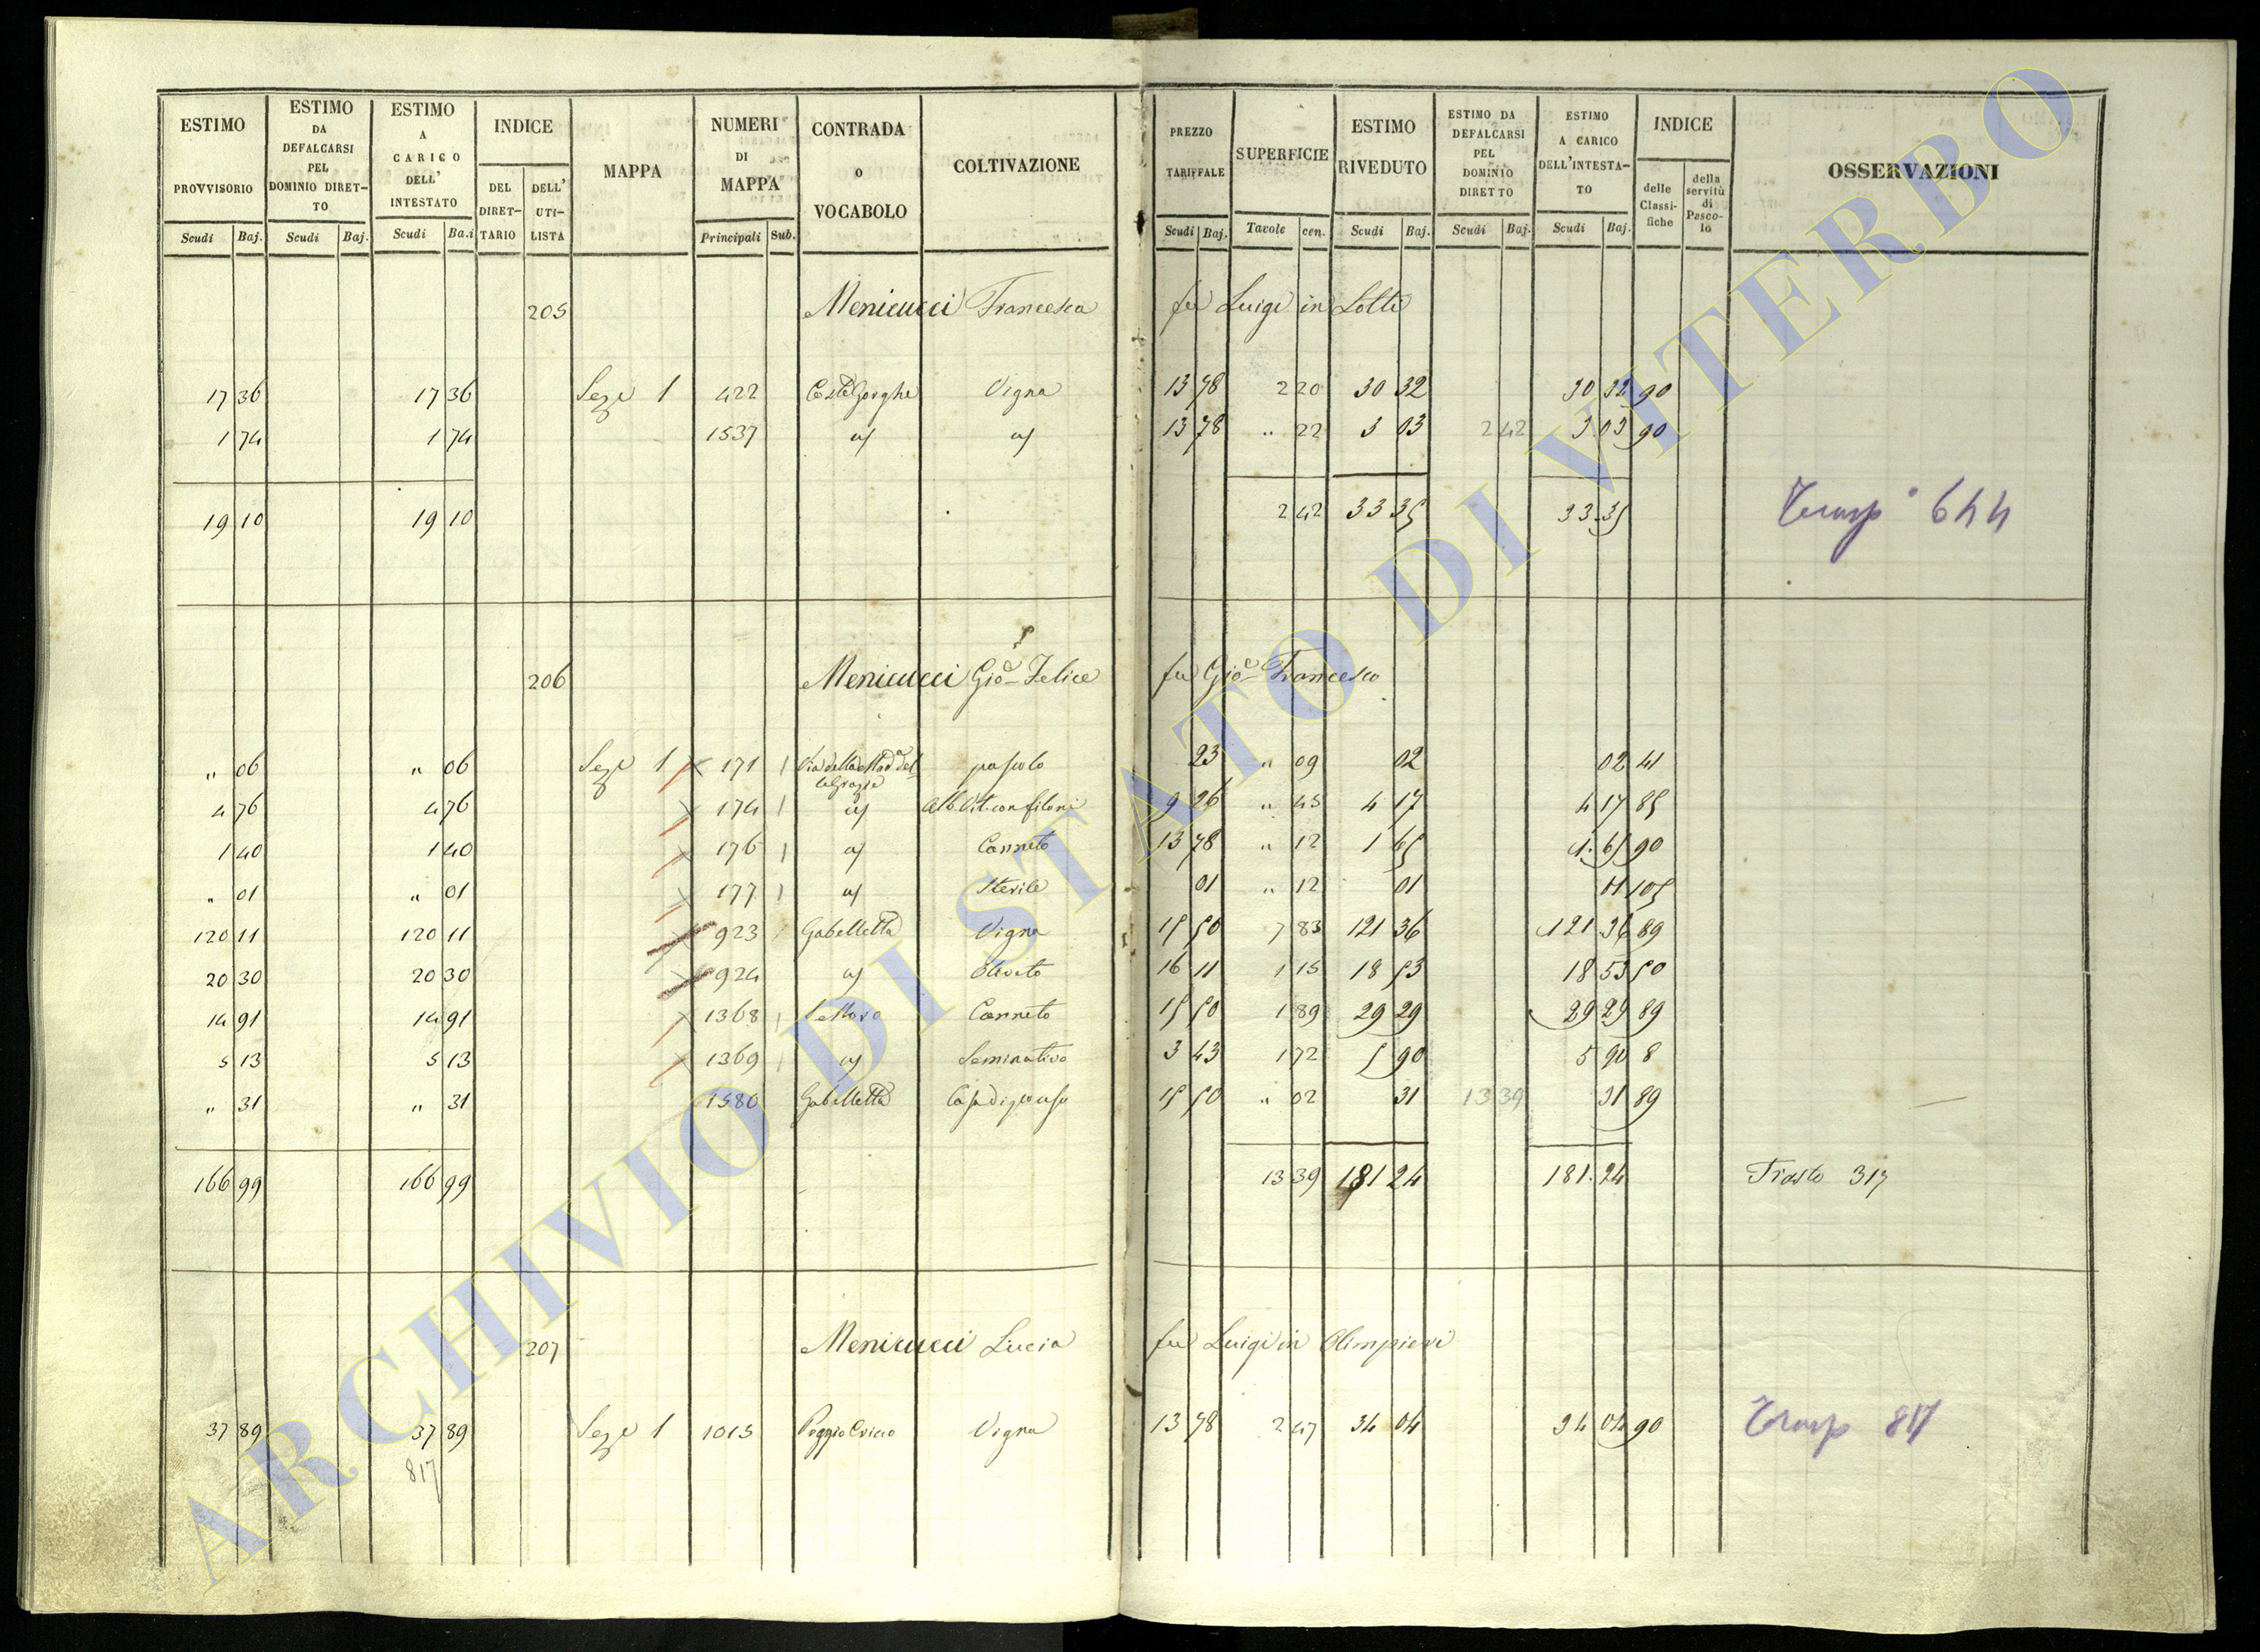 ESTIMO PROVVISORIO
ESTIMO DA DEFALCARSI PEL DOMINIO DIRETTO
ESTIMO A CARICO DELL' INTESTATO
INDICE
DEL DIRETTARIO
DELL' UTILISTA
MAPPA
NUMERI DI MAPPA
CONTRADA o VOCABOLO
COLTIVAZIONE
PREZZO TARIFFALE
SUPERFICIE
ESTIMO RIVEDUTO
ESTIMO DA DEFALCARSI PEL DOMINIO DIRETTO
ESTIMO A CARICO DELL'INTESTATO
INDICE
delle Classifiche
della servitù di Pascolo
OSSERVAZIONI
Scudi Baj. Scudi Baj. Scudi Ba.i Principali Sub. Scudi Baj. Tavole cen. Scudi Baj. Scudi Baj. Scudi Baj.
205 Menicucci Francesca fu Luigi in Lotti
17 36 17 36 Seze 1 422 Vigna 13 78 2 20 30 32 30 32 90
1 74 1 74 1537 13 78 " 22 3 03 2 42 3 03 90
19 10 19 10 2 42 33 35 33.35 Trasp° 644
206 Menicucci Gio Felice fu Gio Francesco
" 06 " 06 Seze 1 171 pascolo 23 " 09 02 02 41
4 76 4 76 174 Alb. Vit. con filoni 9 26 " 45 4 17 4 17 85
1 40 1 40 176 Canneto 13 78 " 12 1 65 1.65 90
" 01 " 01 177 Sterile 01 " 12 01 01 105
120 11 120 11 923 Gabelletta Vigna 15 50 7 83 121 36 121 36 89
20 30 20 30 924 Oliveto 16 11 1 15 18 53 18 53 50
14 91 14 91 1368 Canneto 15 50 1 89 29 29 29 29 89
5 13 5 13 1369 Seminativo 3 43 1 72 5 90 5 90 8
" 31 " 31 1580 Gabelletta 15 50 " 02 31 13 39 31 89
166 99 166 99 13 39 181 24 181.24 317
207 Menicucci Lucia fu Luigi in Olimpieri
37 89 37 89 Seze 1 1015 Vigna 13 78 2 47 34 04 34 04 90 Trasp 817
817
ARCHIVIO DI STATO DI VITERBO